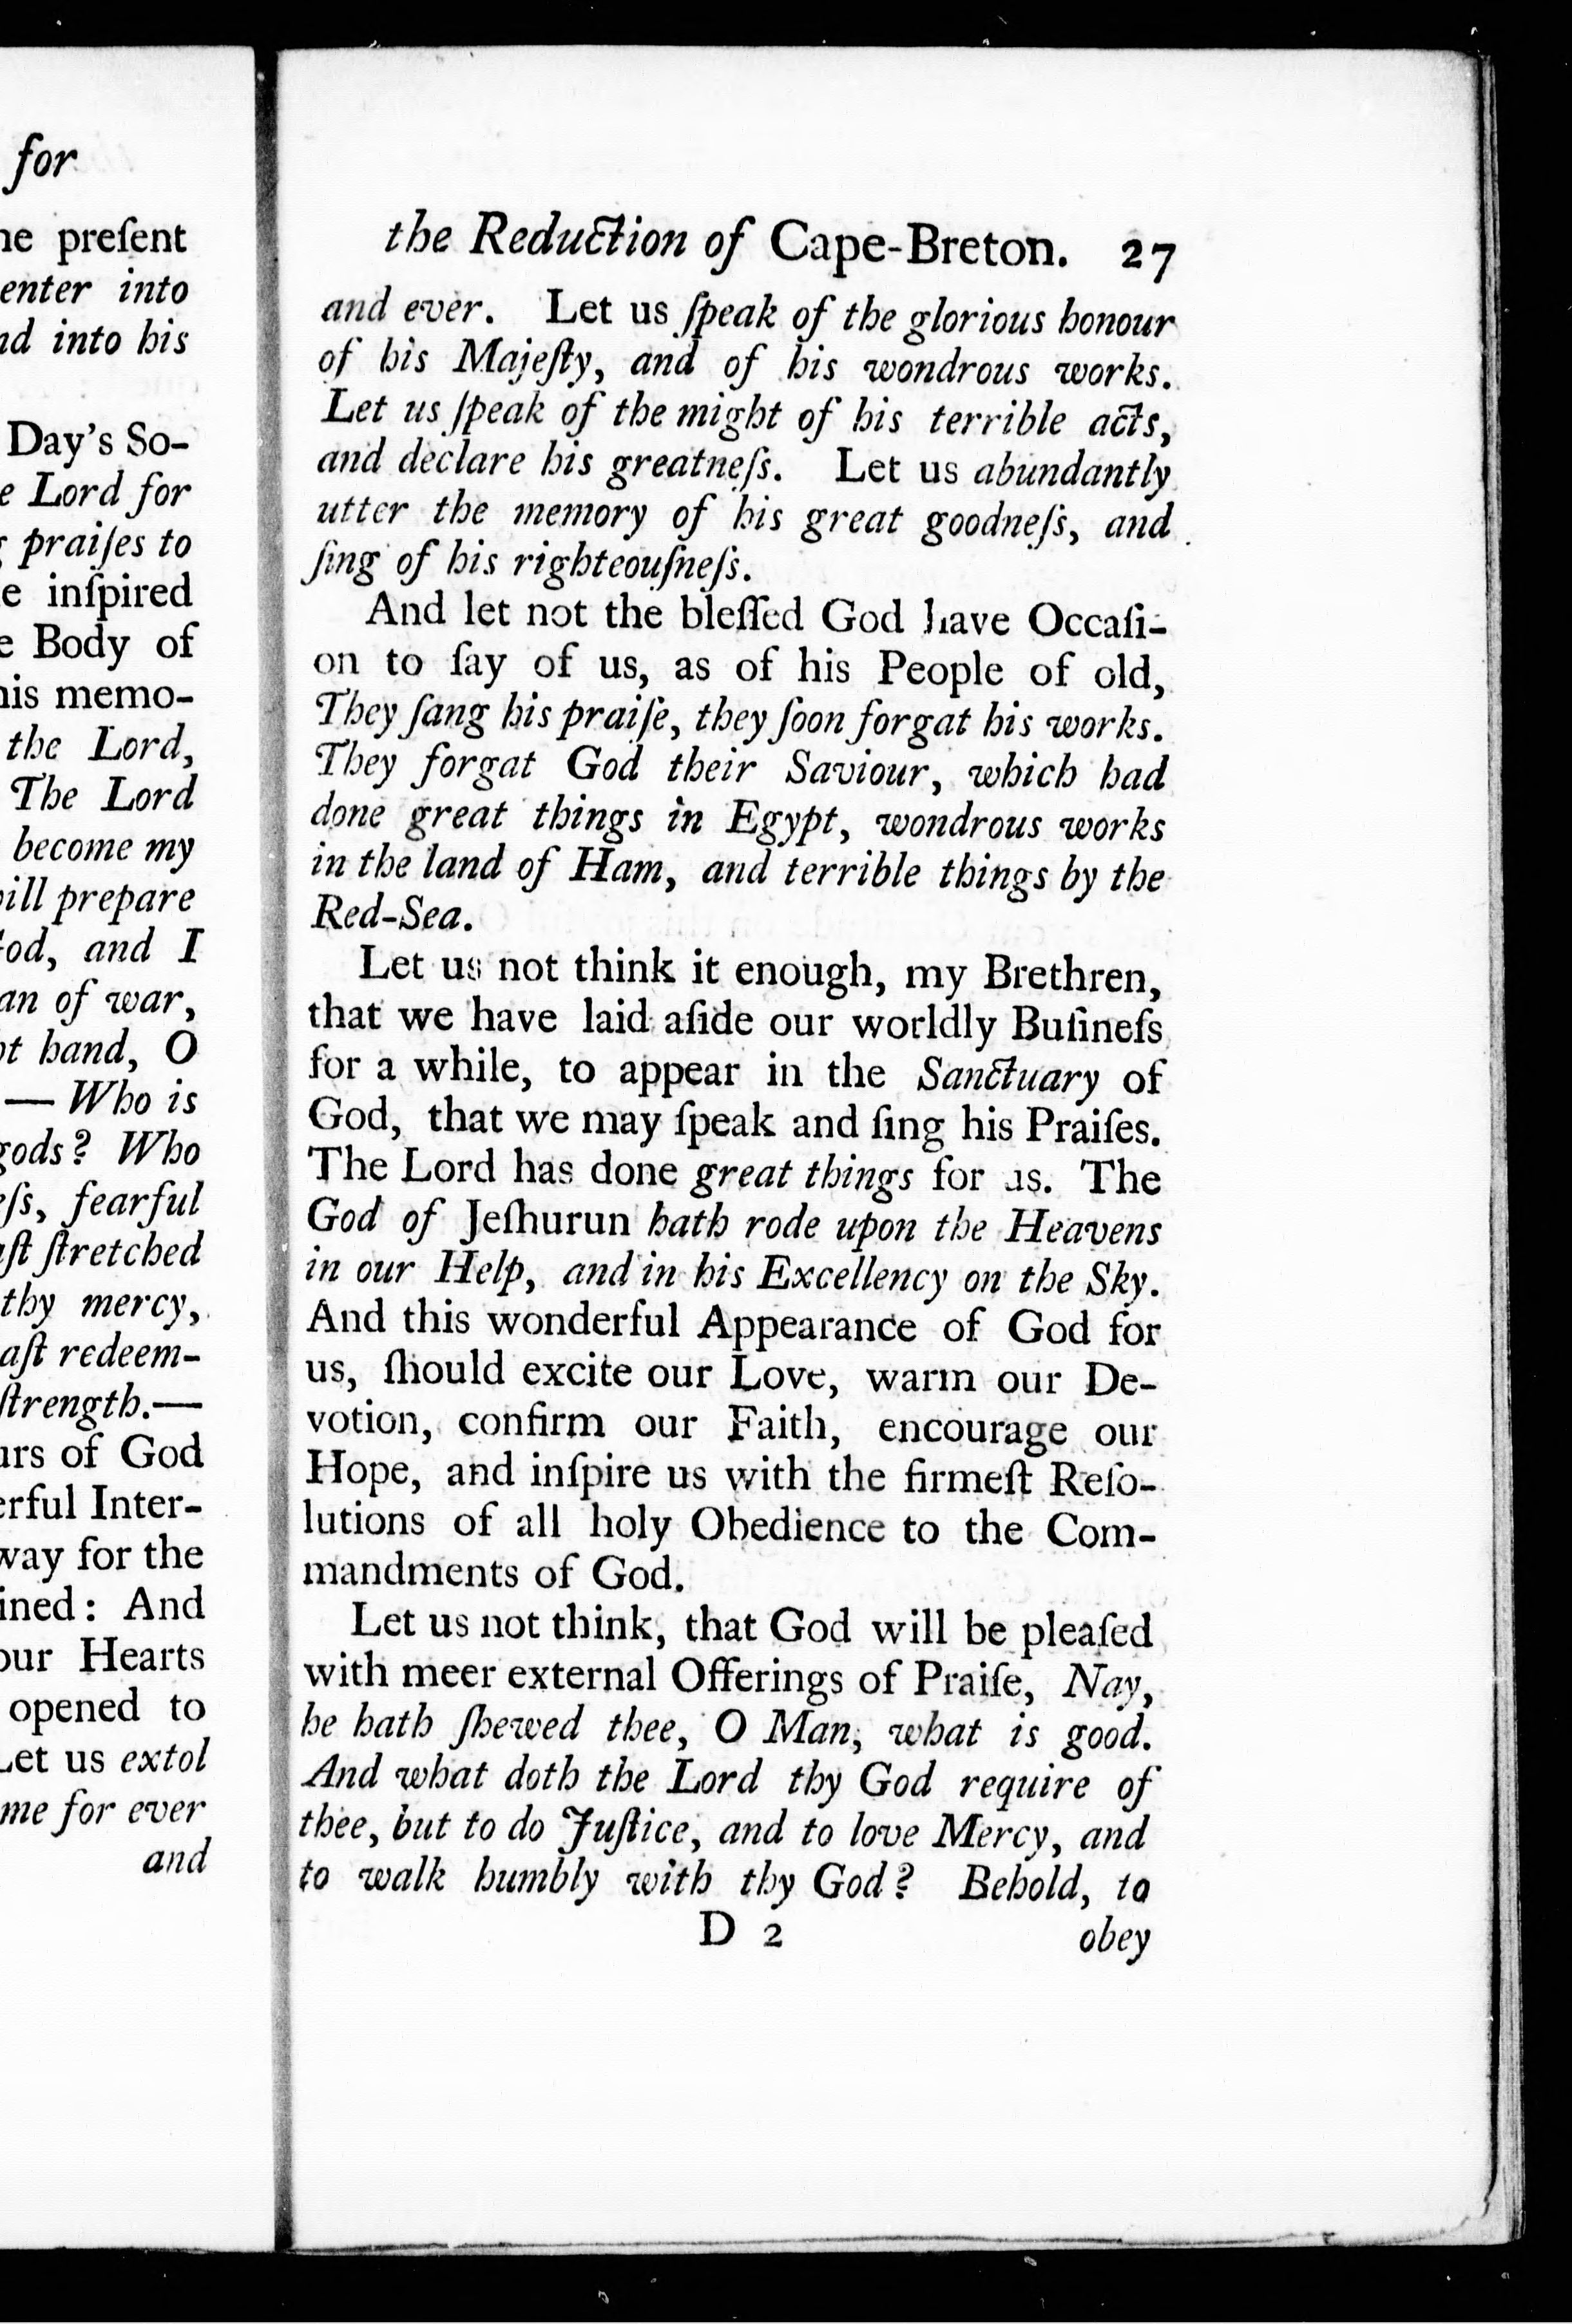 for
preſent
enter into
into his
Day's So-
Lord for
praiſes to
inſpired
Body of
memo-
the Lord,
The Lord
become my
prepare
and I
of war,
hand, O
— Who is
gods? Who
fearful
ſtretched
thy mercy,
redeem-
ſtrength.—
of God
Inter-
way for the
And
our Hearts
opened to
Let us extol
for ever
and
the Reduction of Cape-Breton. 27
and ever. Let us ſpeak of the glorious honour
of his Majeſty, and of his wondrous works.
Let us ſpeak of the might of his terrible acts,
and declare his greatneſs. Let us abundantly
utter the memory of his great goodneſs, and
ſing of his righteouſneſs.
And let not the bleſſed God have Occaſi-
on to ſay of us, as of his People of old,
They ſang his praiſe, they ſoon forgat his works.
They forgat God their Saviour, which had
done great things in Egypt, wondrous works
in the land of Ham, and terrible things by the
Red-Sea.
Let us not think it enough, my Brethren,
that we have laid aſide our worldly Buſineſs
for a while, to appear in the Sanctuary of
God, that we may ſpeak and ſing his Praiſes.
The Lord has done great things for us. The
God of Jeſhurun hath rode upon the Heavens
in our Help, and in his Excellency on the Sky.
And this wonderful Appearance of God for
us, ſhould excite our Love, warm our De-
votion, confirm our Faith, encourage our
Hope, and inſpire us with the firmeſt Reſo-
lutions of all holy Obedience to the Com-
mandments of God.
Let us not think, that God will be pleaſed
with meer external Offerings of Praiſe, Nay,
he hath ſhewed thee, O Man, what is good.
And what doth the Lord thy God require of
thee, but to do Juſtice, and to love Mercy, and
to walk humbly with thy God? Behold, to
D 2 obey